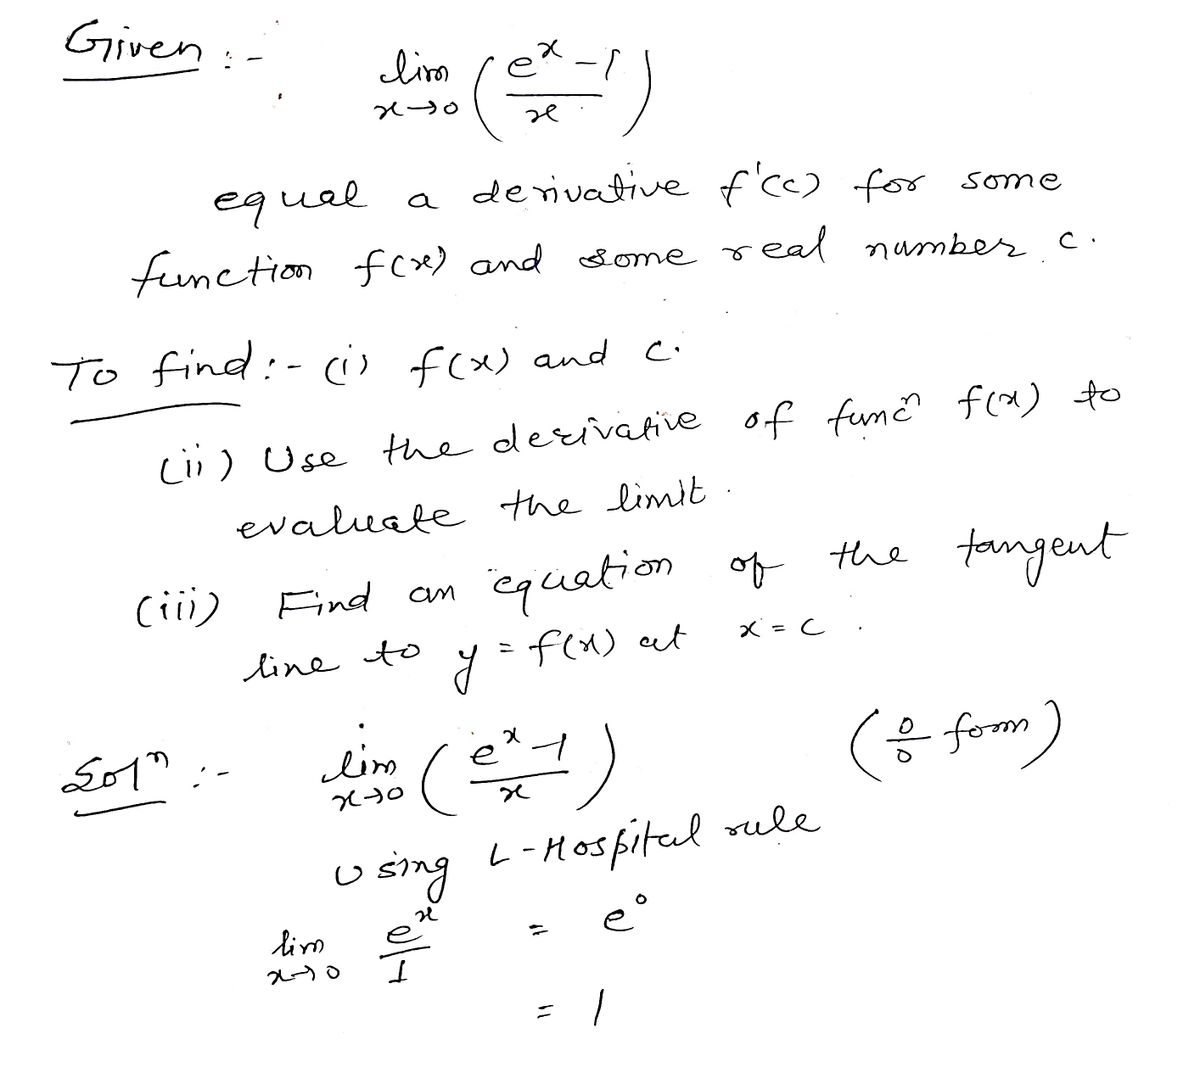 Given :-
lim x→0 ( (e^x - 1) / x )
equal a derivative f'(c) for some
function f(x) and some real number c.
To find:- (i) f(x) and c.
(ii) Use the derivative of funcⁿ f(x) to
evaluate the limit.
(iii) Find an equation of the tangent
line to y = f(x) at x = c.
Solⁿ :- lim x→0 ( (e^x - 1) / x ) (0/0 form)
Using L-Hospital rule
lim x→0 e^x / 1 = e^0
= 1